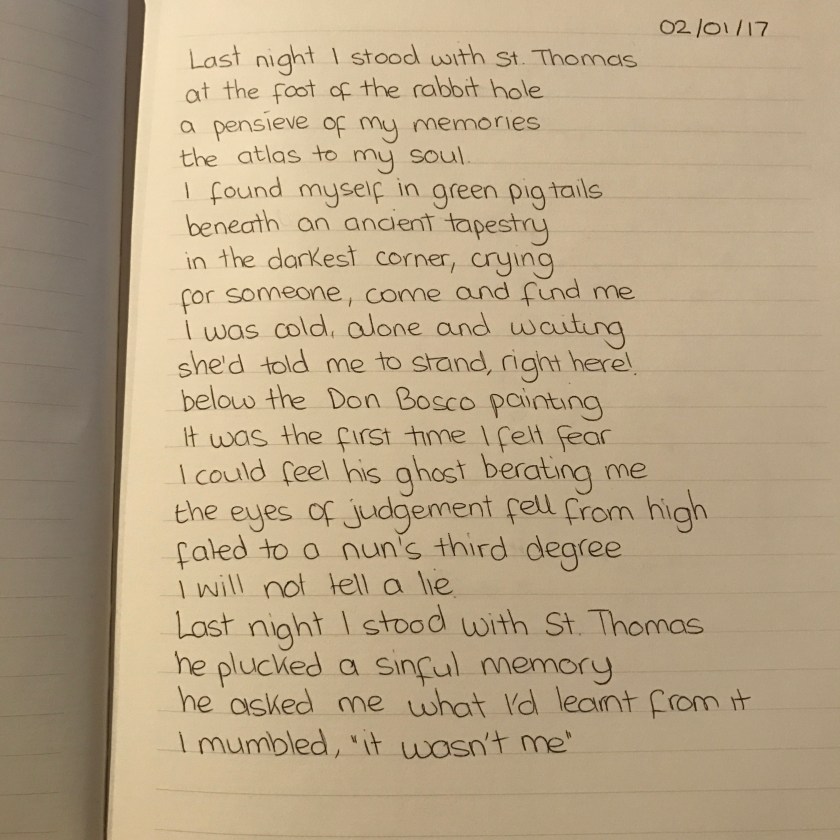 02/01/17
Last night I stood with St. Thomas
at the foot of the rabbit hole
a pensieve of my memories
the atlas to my soul.
I found myself in green pigtails
beneath an ancient tapestry
in the darkest corner, crying
for someone, come and find me
I was cold, alone and waiting
she'd told me to stand, right here!
below the Don Bosco painting
It was the first time I felt fear
I could feel his ghost berating me
the eyes of judgement fell from high
fated to a nun's third degree
I will not tell a lie
Last night I stood with St. Thomas
he plucked a sinful memory
he asked me what I'd learnt from it
I mumbled, "it wasn't me"